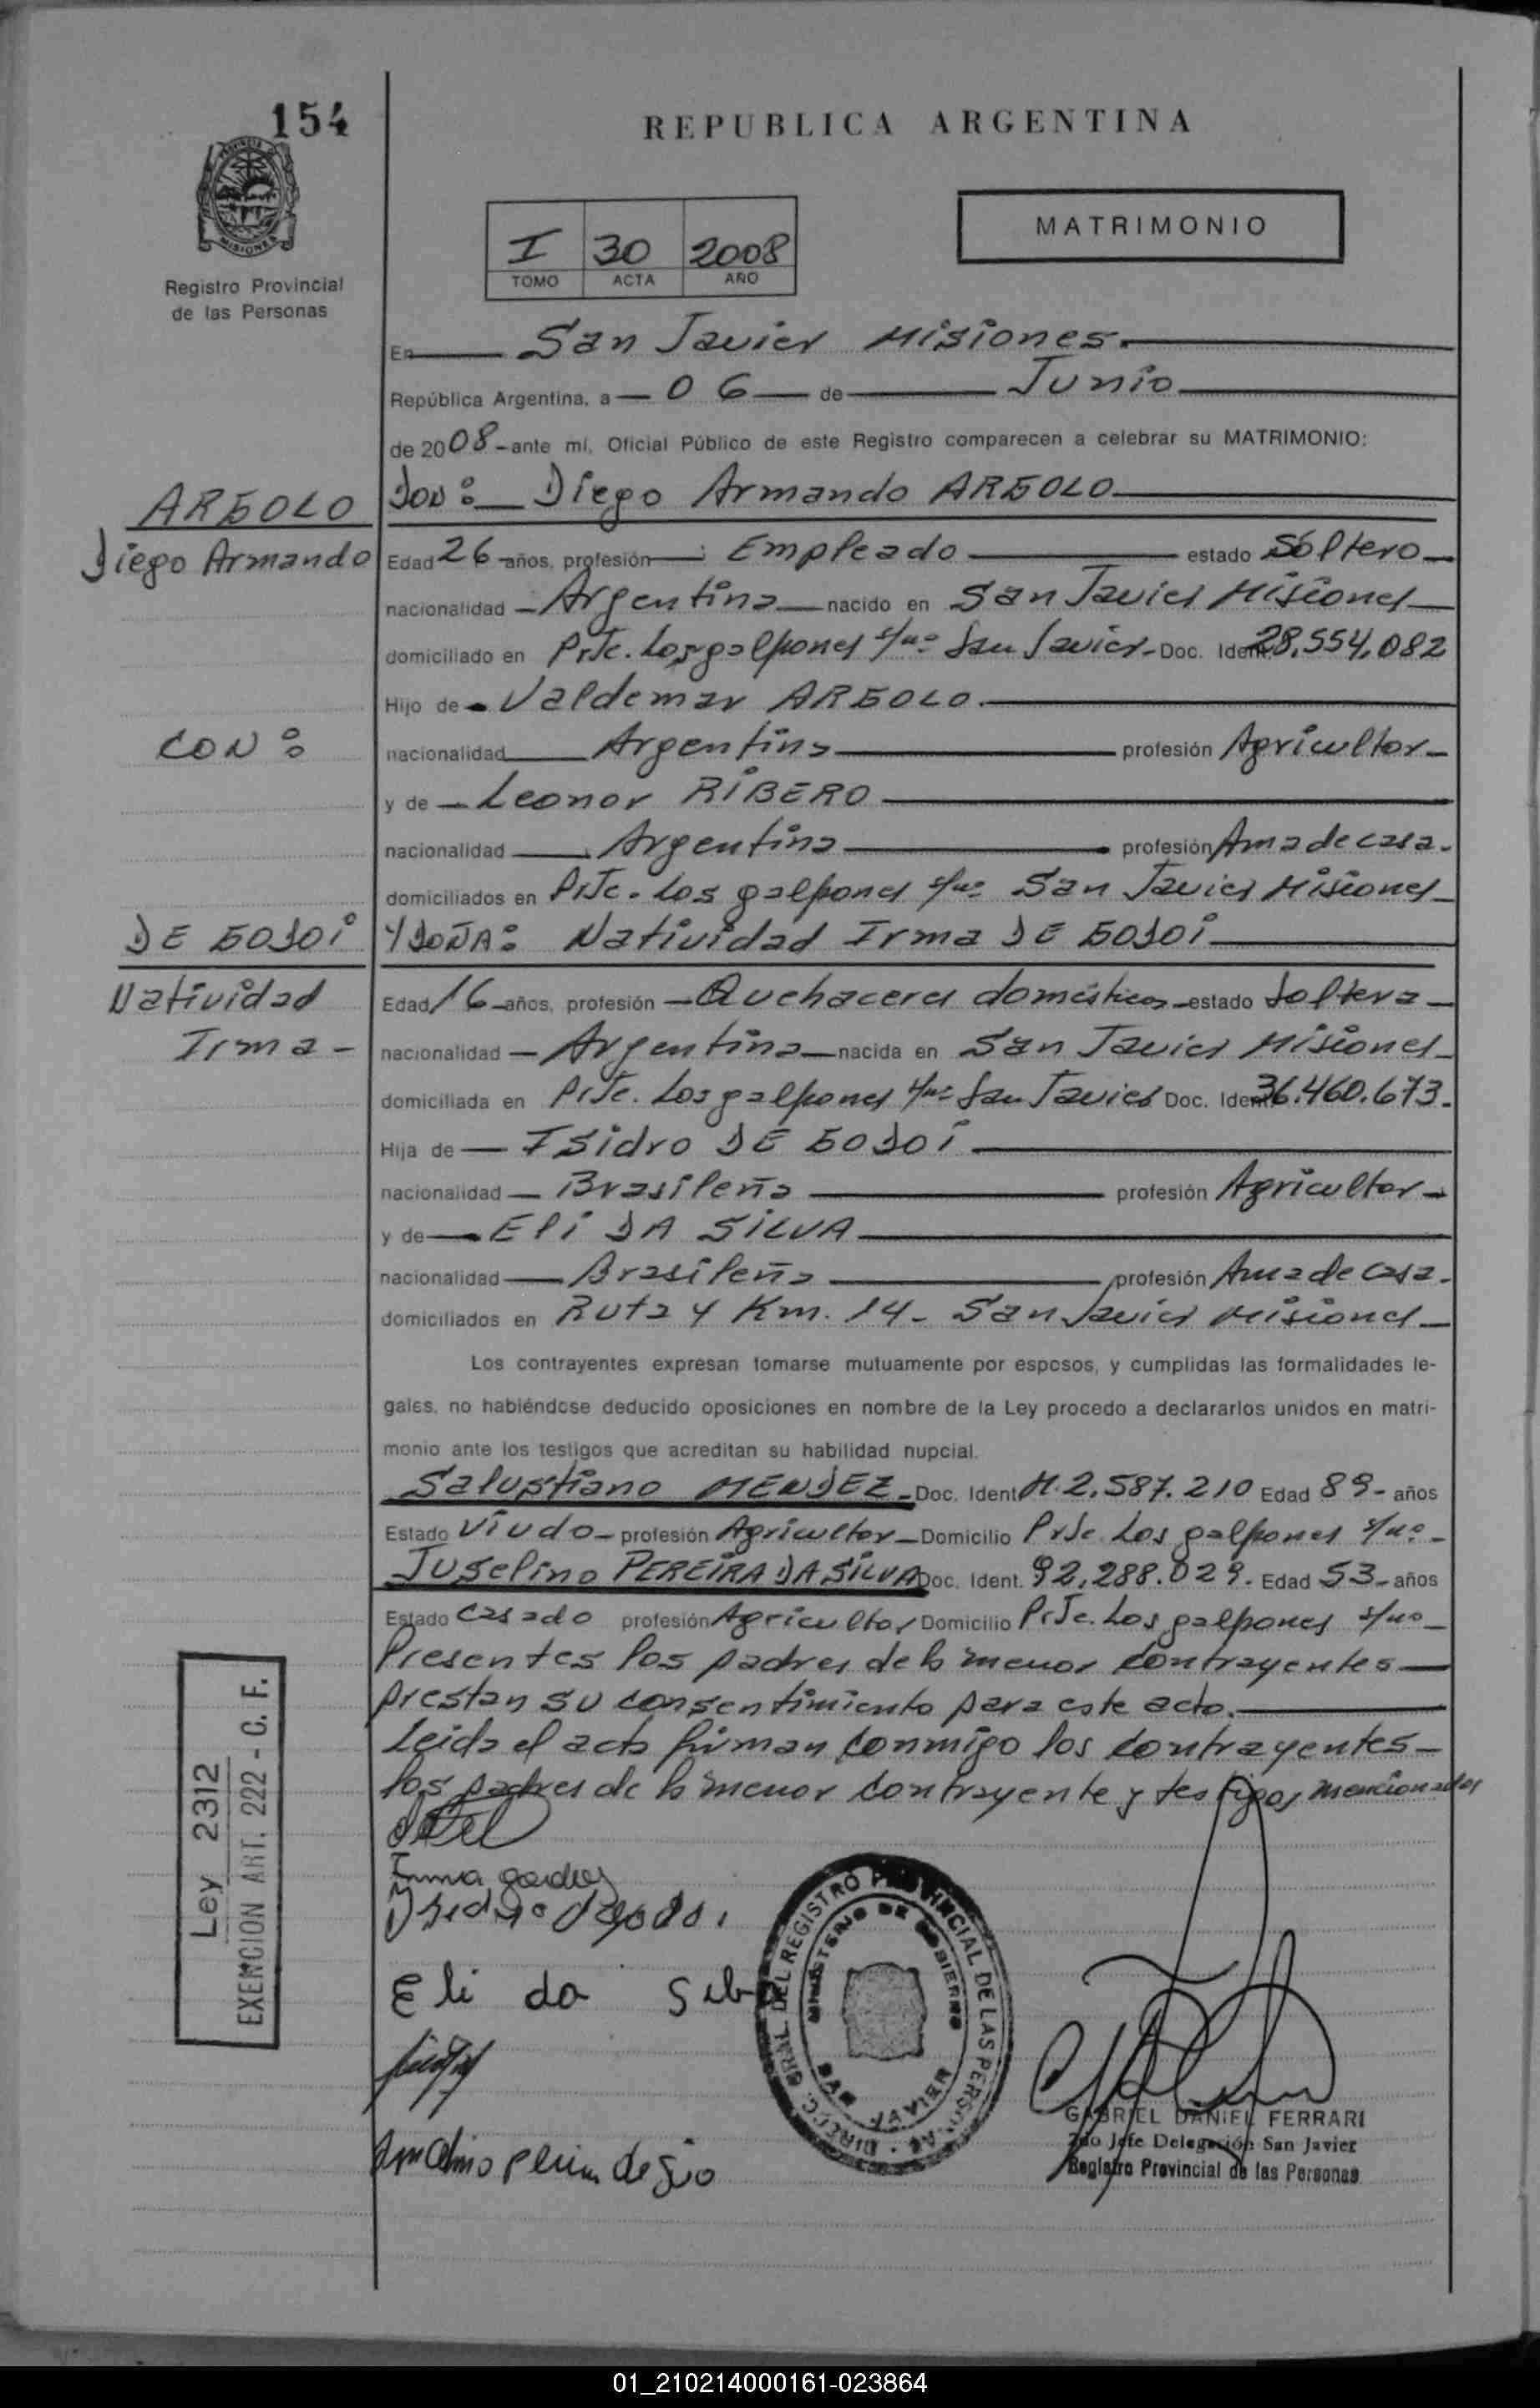 154
REPUBLICA ARGENTINA
PROVINCIA DE MISIONES
Registro Provincial
de las Personas
I 30 2008
TOMO ACTA AÑO
MATRIMONIO
En San Javier Misiones.
República Argentina, a 06 de Junio
de 2008 ante mí, Oficial Público de este Registro comparecen a celebrar su MATRIMONIO:
ARGOLO
Diego Armando
DON: Diego Armando ARGOLO
Edad 26 años, profesión: Empleado estado Soltero
nacionalidad Argentina nacido en San Javier Misiones
domiciliado en Prje. Los galpones s/nº San Javier Doc. Ident. 28.554.082
Hijo de Valdemar ARGOLO.
CON:
nacionalidad Argentina profesión Agricultor
y de Leonor RIBERO
nacionalidad Argentina profesión Ama de casa.
domiciliados en Prje. Los galpones s/nº San Javier Misiones
DE GODOI
Natividad
Irma -
Y DOÑA: Natividad Irma DE GODOI
Edad 16 años, profesión Quehaceres domésticos estado Soltera
nacionalidad Argentina nacida en San Javier Misiones
domiciliada en Prje. Los galpones s/nº San Javier Doc. Ident. 36.460.673.
Hija de Isidro DE GODOI
nacionalidad Brasileña profesión Agricultor
y de Eli DA SILVA
nacionalidad Brasileña profesión Ama de casa.
domiciliados en Ruta 4 Km. 14 - San Javier Misiones
Los contrayentes expresan tomarse mutuamente por esposos, y cumplidas las formalidades le-
gales, no habiéndose deducido oposiciones en nombre de la Ley procedo a declararlos unidos en matri-
monio ante los testigos que acreditan su habilidad nupcial.
Salustiano MENDEZ Doc. Ident. M. 2.587.210 Edad 89 años
Estado Viudo profesión Agricultor Domicilio Prje. Los galpones s/nº
Juselino PEREIRA DA SILVA Doc. Ident. 92.288.029. Edad 53 años
Estado Casado profesión Agricultor Domicilio Prje. Los galpones s/nº
Presentes los padres de la menor contrayentes
prestan su consentimiento para este acto.
Leida el acta firman conmigo los contrayentes
los padres de la menor contrayente y testigos mencionados
Ley 2312
EXENCION ART. 222 - C. F.
Irma
Eli da Silva
DIRECC. GRAL. DEL REGISTRO PROVINCIAL DE LAS PERSONAS
MINISTERIO DE GOBIERNO
SAN JAVIER
GABRIEL DANIEL FERRARI
2do Jefe Delegación San Javier
Registro Provincial de las Personas
01_210214000161-023864